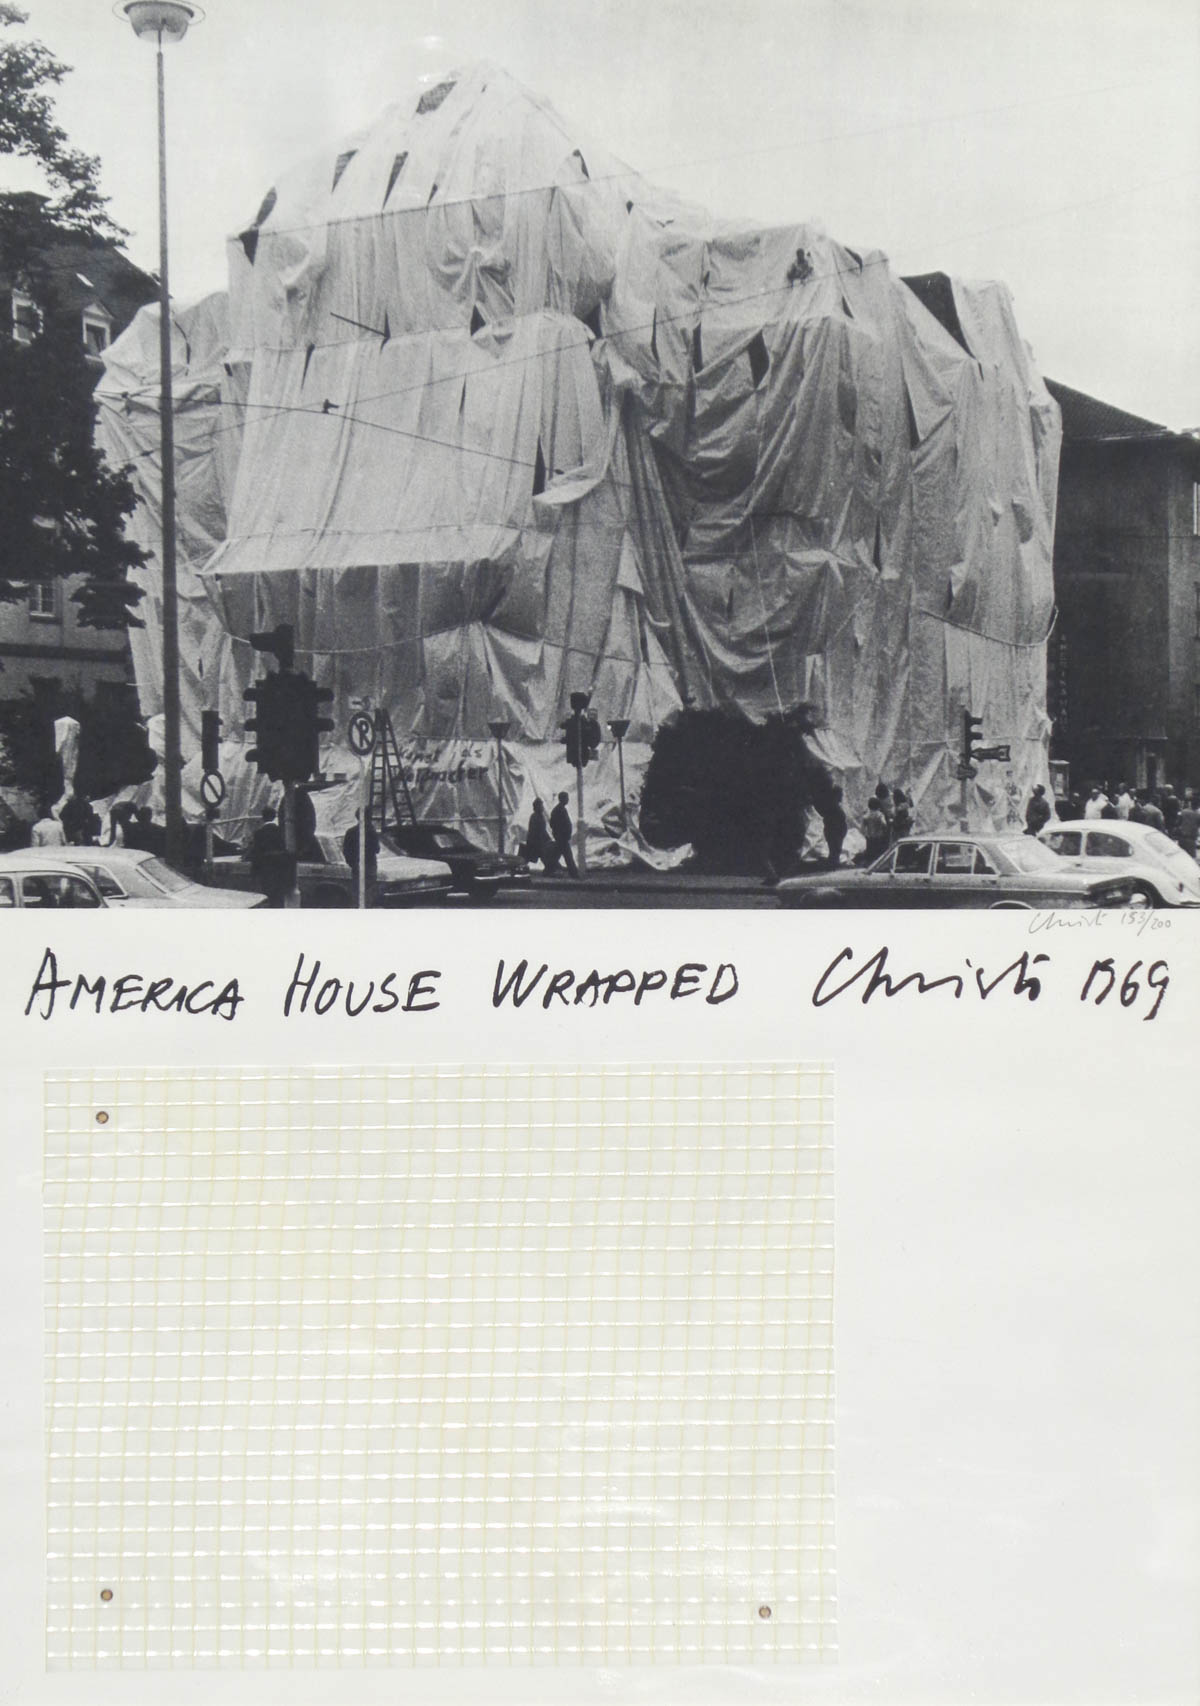 Kunst als
Christo 153/200
AMERICA HOUSE WRAPPED Christo 1969